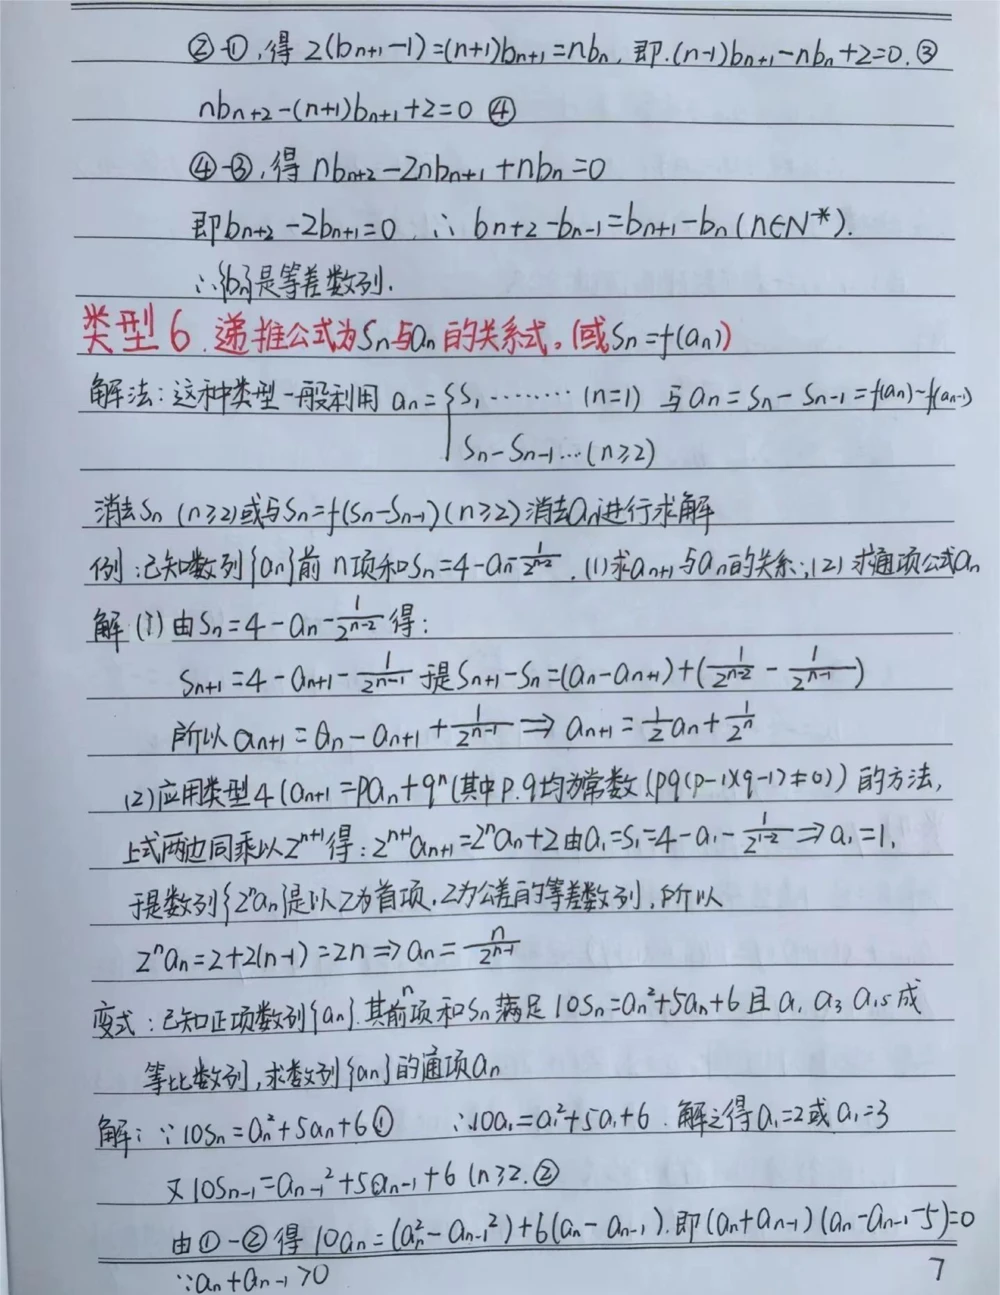 ②-①,得 2(bn+1-1)=(n+1)bn+1=nbn, 即.(n-1)bn+1-nbn+2=0.③
nbn+2-(n+1)bn+1+2=0 ④
④-③,得 nbn+2-2nbn+1+nbn=0
即bn+2-2bn+1=0,∴ bn+2-bn-1=bn+1-bn(n∈N*).
∴{bn}是等差数列.
类型6.递推公式为Sn与an的关系式。(或Sn=f(an))
解法:这种类型一般利用 an={S1………(n=1) 与an=Sn-Sn-1=f(an)-f(an-1)
Sn-Sn-1…(n≥2)
消去Sn (n≥2)或与Sn=f(Sn-Sn-1)(n≥2)消去an进行求解
例:已知数列{an}前n项和Sn=4-an-1/2^(n-2).(1)求an+1与an的关系;(2)求通项公式an
解(1)由Sn=4-an-1/2^(n-2)得:
Sn+1=4-an+1-1/2^(n-1) 于是Sn+1-Sn=(an-an+1)+(1/2^(n-2)-1/2^(n-1))
所以an+1=an-an+1+1/2^(n-1)⇒an+1=1/2an+1/2^n
(2)应用类型4(an+1=pan+q^n(其中p.q均为常数(pq(p-1)(q-1)≠0))的方法,
上式两边同乘以2^(n+1)得:2^(n+1)an+1=2^n an+2由a1=S1=4-a1-1/2^(1-2)⇒a1=1,
于是数列{2^n an}是以2为首项,2为公差的等差数列,所以
2^n an=2+2(n-1)=2n⇒an=n/2^(n-1)
变式:已知正项数列{an}.其前n项和Sn满足10Sn=an²+5an+6且a1 a3 a15成
等比数列,求数列{an}的通项an
解:∵10Sn=an²+5an+6① ∴10a1=a1²+5a1+6.解之得a1=2或a1=3
又10Sn-1=an-1²+5an-1+6(n≥2.②
由①-②得10an=(an²-an-1²)+6(an-an-1).即(an+an-1)(an-an-1-5)=0
∵an+an-1>0
7